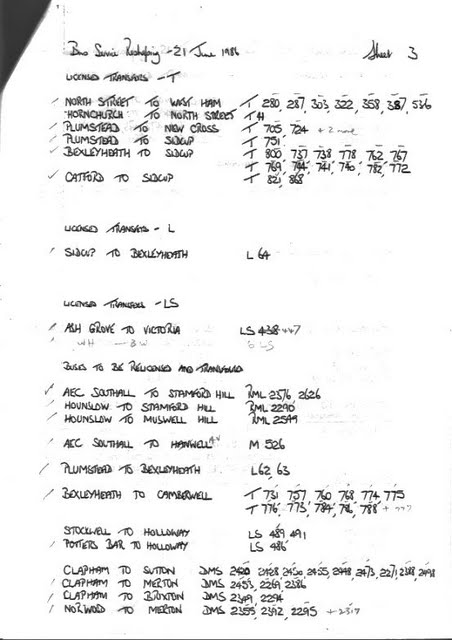 Bus Service Reshaping - 21 June 1986 Sheet 3
LICENSED TRANSFERS - T
NORTH STREET TO WEST HAM T 280, 287, 303, 322, 358, 387, 536
HORNCHURCH TO NORTH STREET T 41
PLUMSTEAD TO NEW CROSS T 705 724 + 2 more
PLUMSTEAD TO SIDCUP T 751
BEXLEYHEATH TO SIDCUP T 800 737 738 778, 762, 767
T 769, 744, 741, 740, 782, 772
CATFORD TO SIDCUP T 821, 868
LICENSED TRANSFERS - L
SIDCUP TO BEXLEYHEATH L 64
LICENSED TRANSFERS - LS
ASH GROVE TO VICTORIA LS 438 +447
WH — BW 6 LS
BUSES TO BE RELICENSED AND TRANSFERRED
AEC SOUTHALL TO STAMFORD HILL RML 2576 2626
HOUNSLOW TO STAMFORD HILL RML 2290
HOUNSLOW TO MUSWELL HILL RML 2549
AEC SOUTHALL TO HANWELL AV M 526
PLUMSTEAD TO BEXLEYHEATH L62, 63
BEXLEYHEATH TO CAMBERWELL T 731 757 760 768 774 775
T 776, 773, 784, 786, 788 + 777
STOCKWELL TO HOLLOWAY LS 489 491
POTTERS BAR TO HOLLOWAY LS 486
CLAPHAM TO SUTTON DMS 2420 2428 2430, 2455, 2448, 2473, 2271 2388, 2498
CLAPHAM TO MERTON DMS 2453, 2269 2386
CLAPHAM TO BRIXTON DMS 2349 2294
NORWOOD TO MERTON DMS 2355, 2392, 2295 + 2317